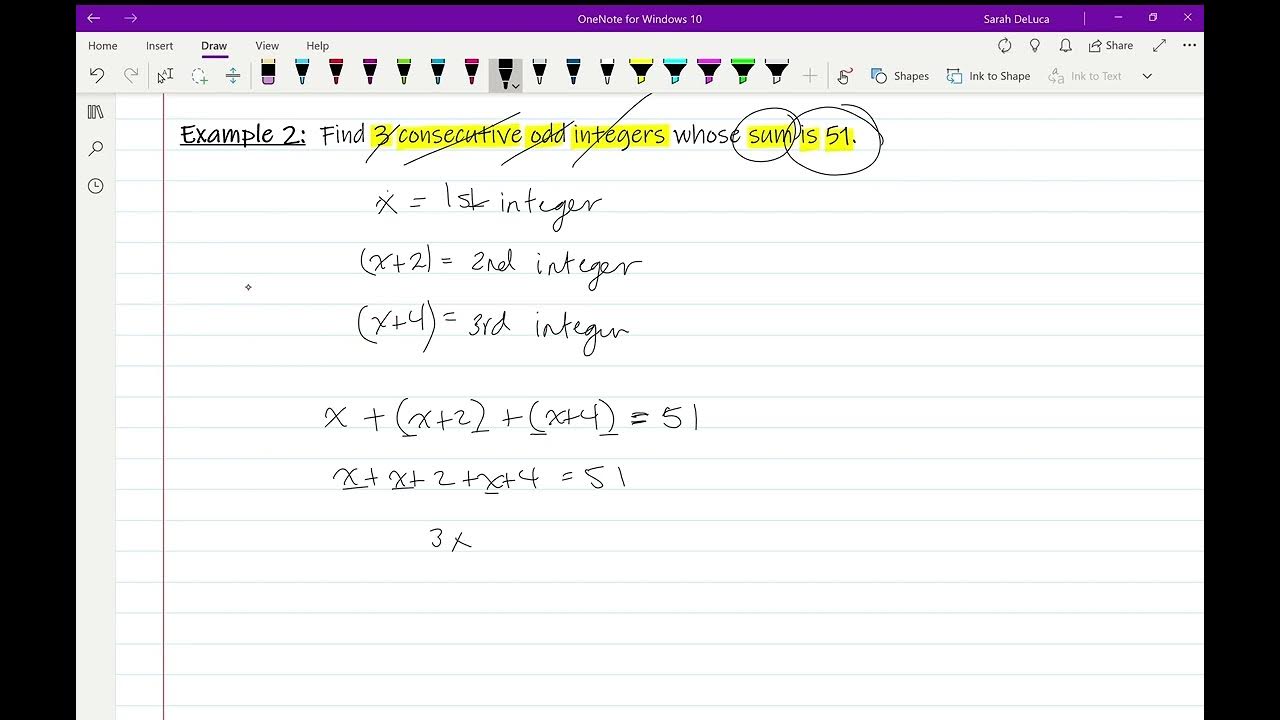 OneNote for Windows 10
Sarah DeLuca
Home Insert Draw View Help
Share
Shapes Ink to Shape Ink to Text
Example 2: Find 3 consecutive odd integers whose sum is 51.
x = 1st integer
(x+2) = 2nd integer
(x+4) = 3rd integer
x + (x+2) + (x+4) = 51
x + x + 2 + x + 4 = 51
3x